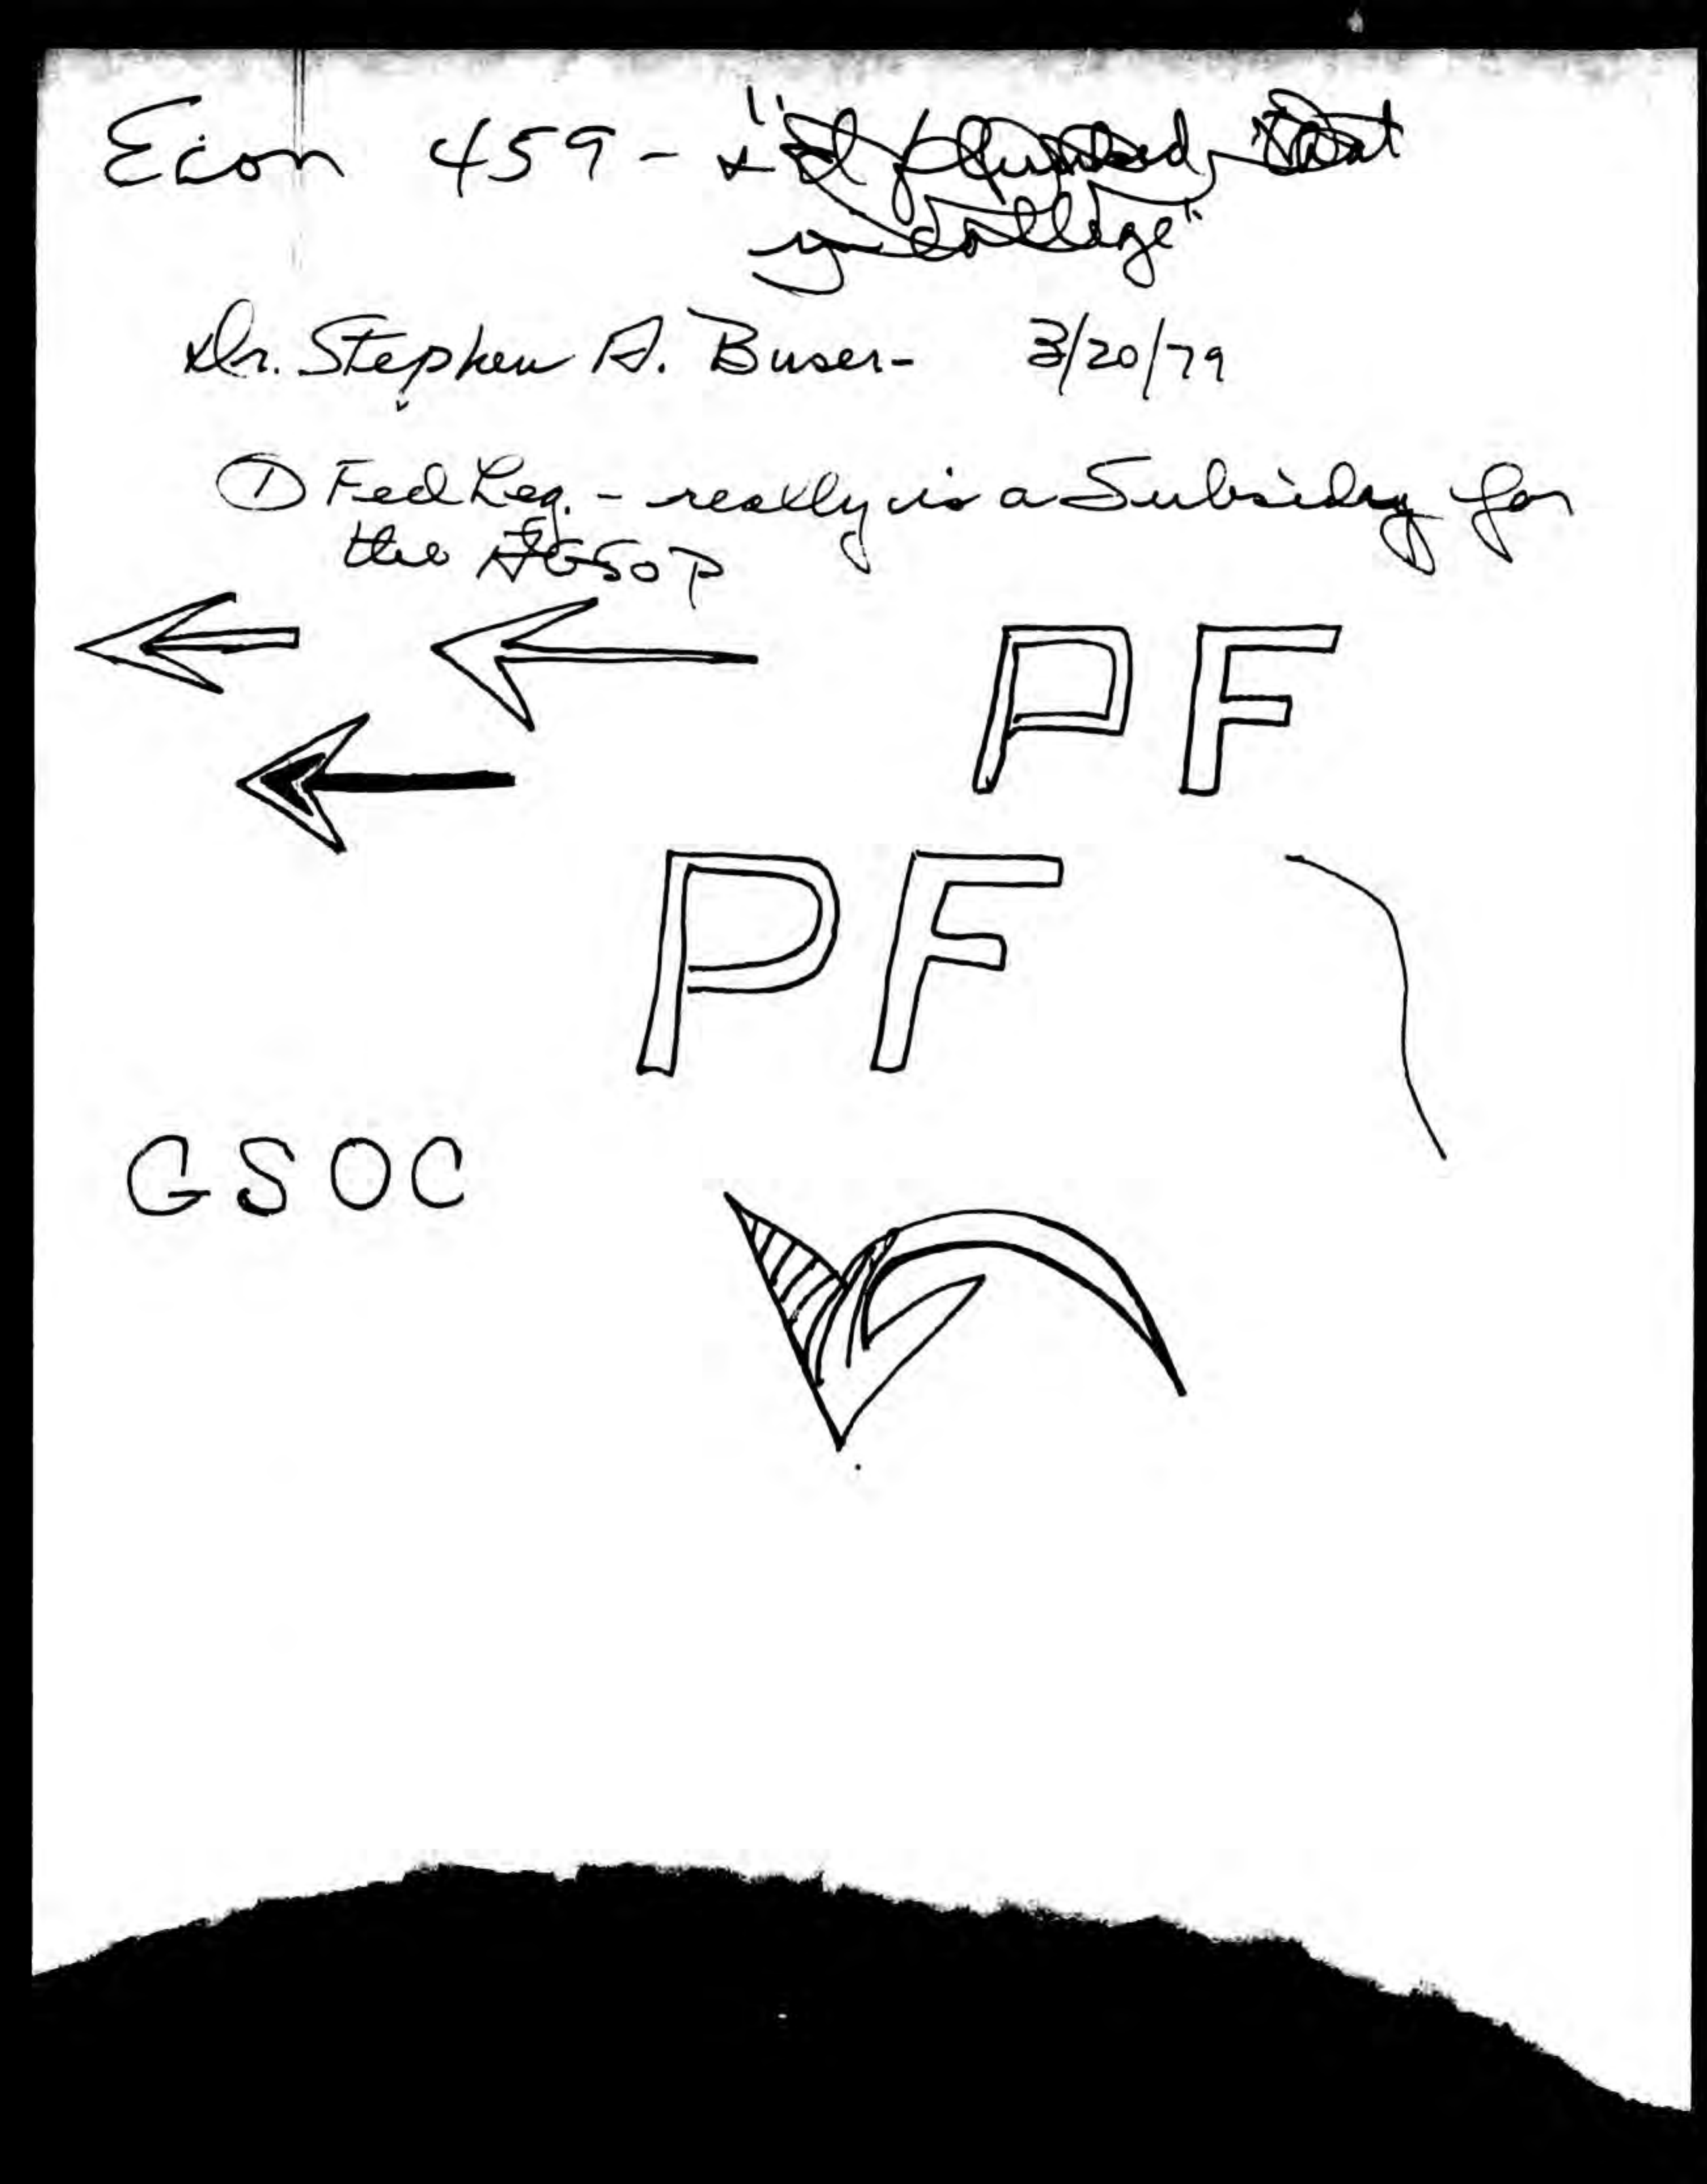 Econ 459 - "I flunked that
in college"
Dr. Stephen A. Buser - 3/20/79
① Fed Leg. - really is a Subsidy for
the GSOP
PF
PF
GSOC